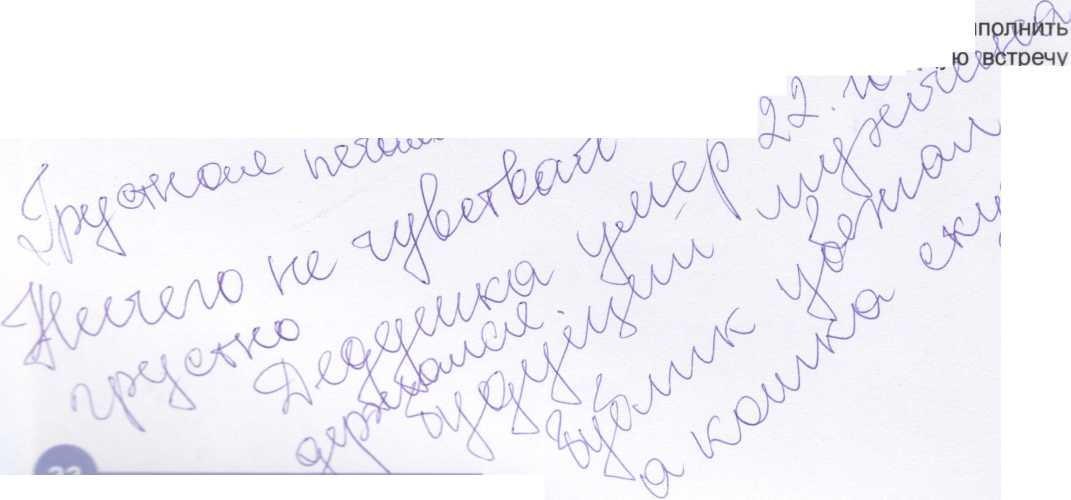 ıполнить
ю встречу
Грустная
Ничего не чувствал
грустно
Дедушка умер 22.
держался.
будущий мужчина
Бублик убежал
а кошка